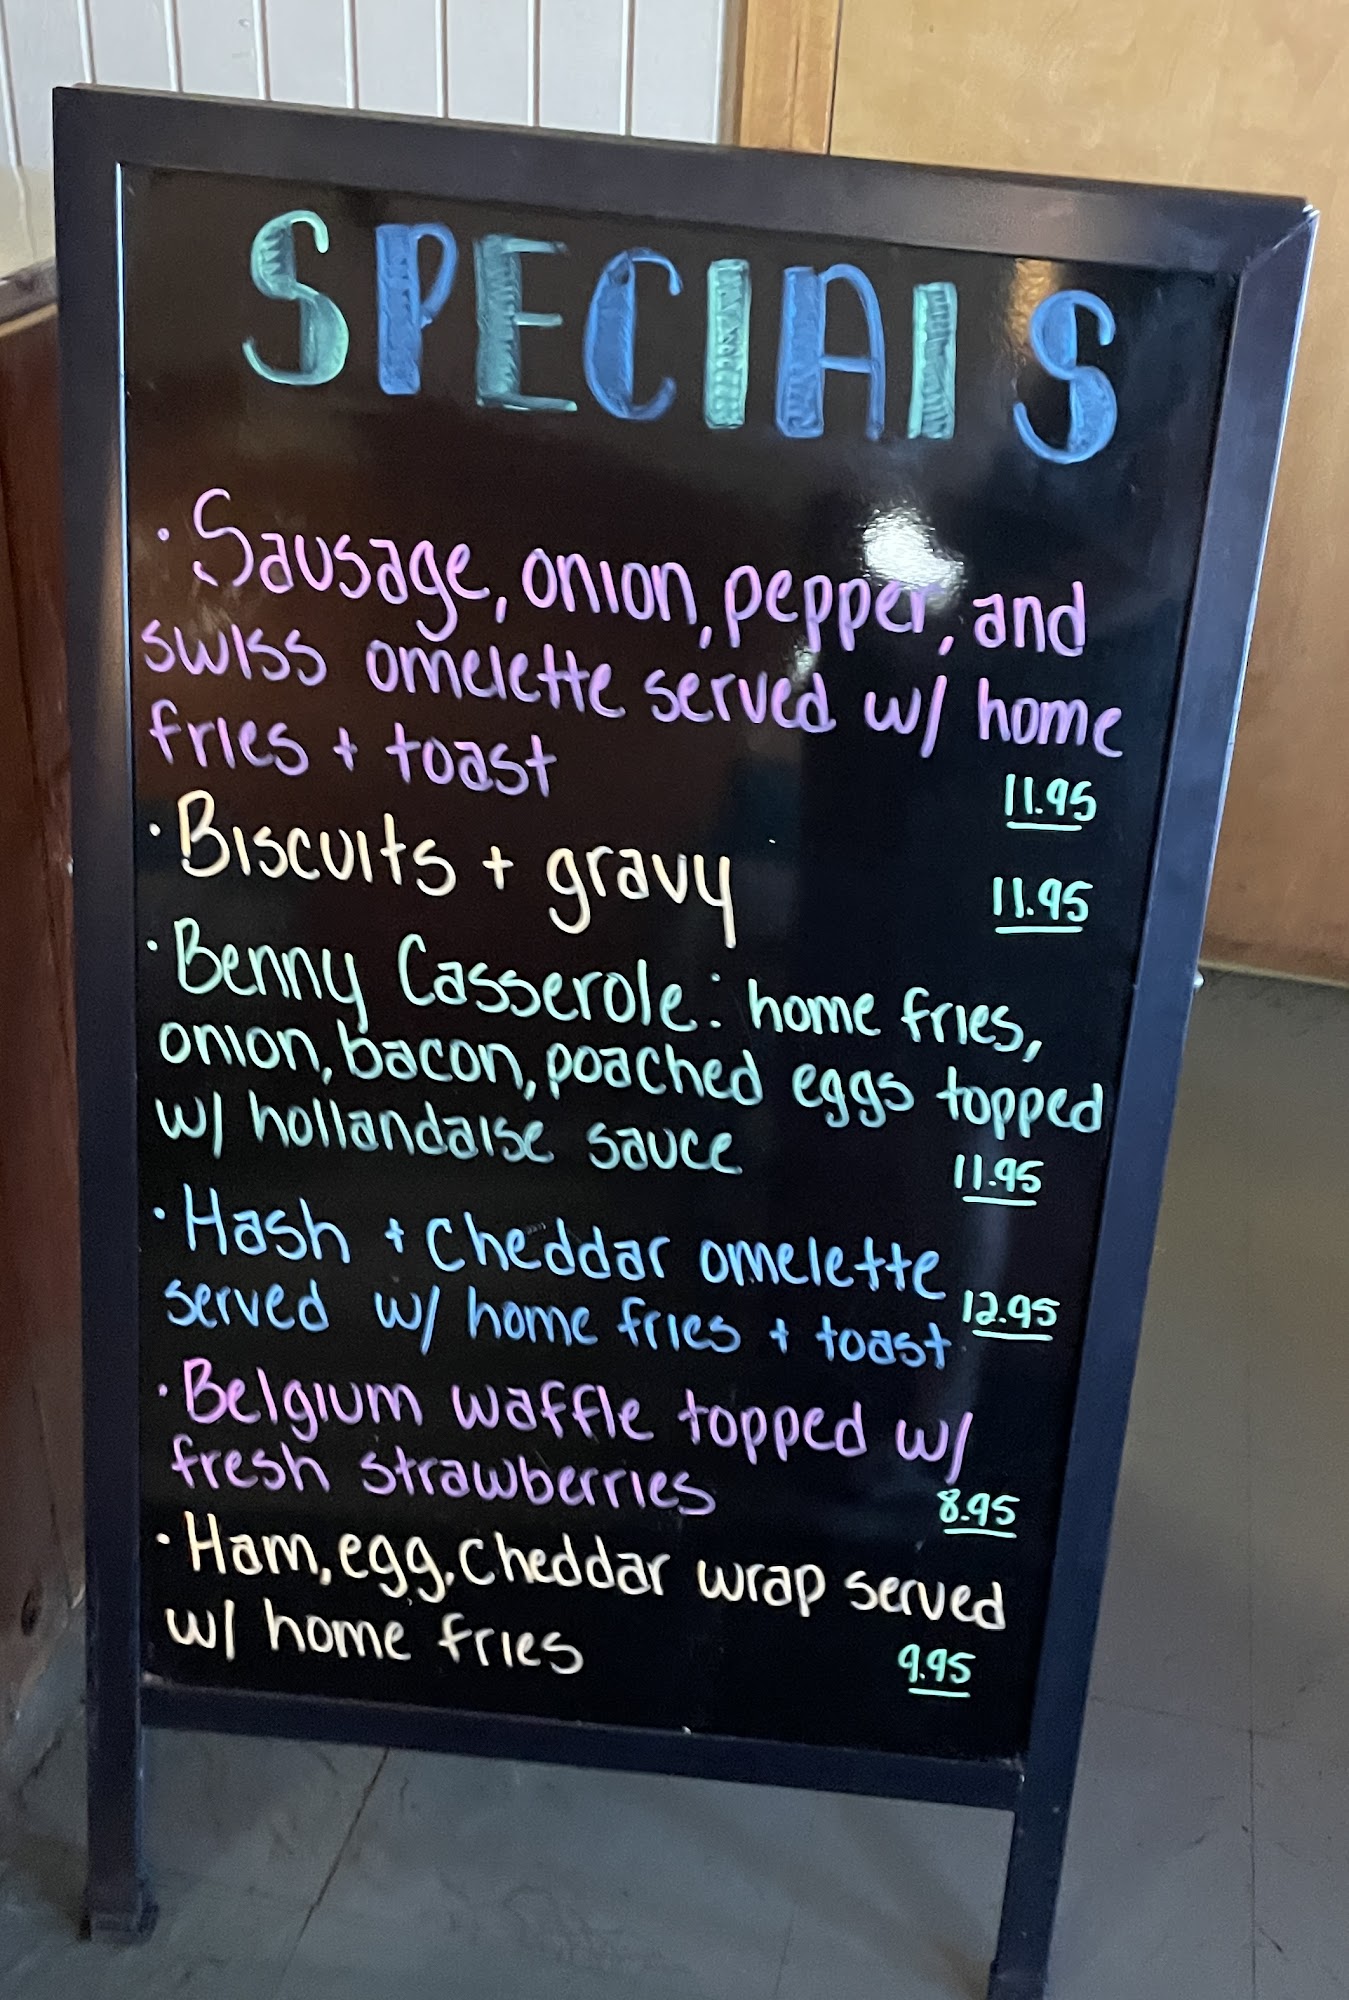 SPECIALS
· Sausage, onion, pepper, and
swiss omelette served w/ home
fries + toast
11.95
· Biscuits + gravy 11.95
· Benny Casserole: home fries,
onion, bacon, poached eggs topped
w/ hollandaise sauce 11.95
· Hash + Cheddar omelette
served w/ home fries + toast 12.95
· Belgium waffle topped w/
fresh strawberries 8.95
· Ham, egg, Cheddar wrap served
w/ home fries 9.95